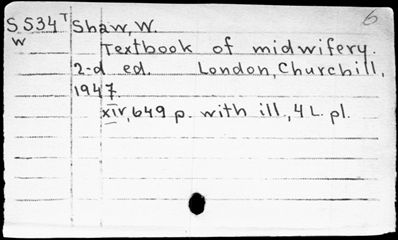 6
S 534 T Shaw, W.
W
Textbook of midwifery.
2-d ed. London, Churchill,
1947.
xiv, 649 p. with ill., 4 L. pl.